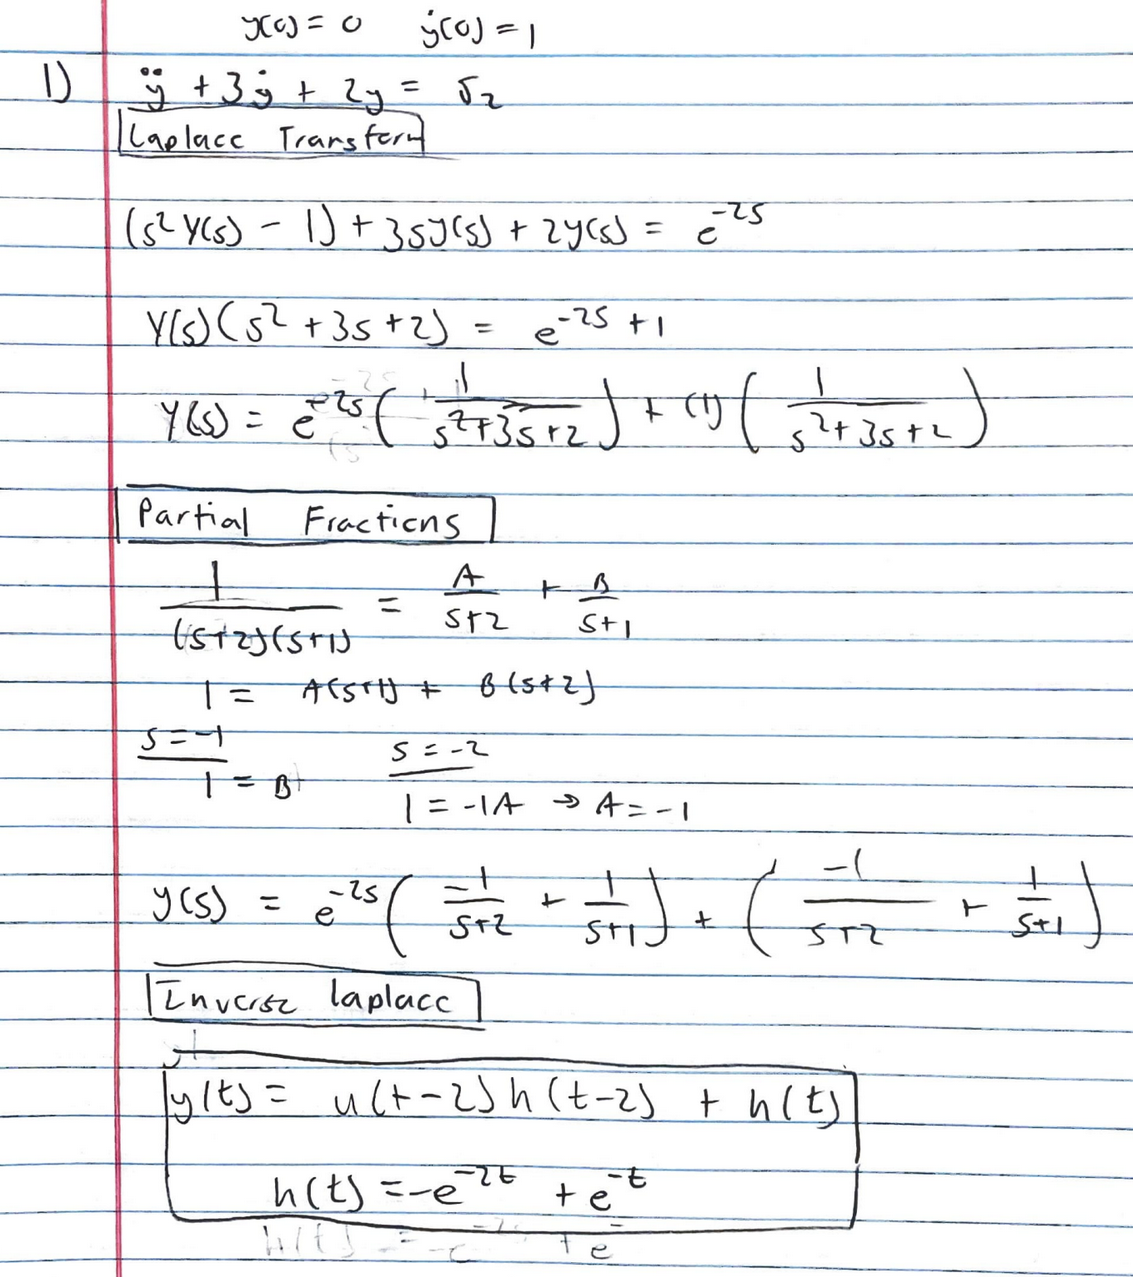 y(0) = 0   ẏ(0) = 1
1) ÿ + 3ẏ + 2y = δ₂
Laplace Transform
(s²Y(s) - 1) + 3sy(s) + 2y(s) = e^-2s
Y(s)(s² + 3s + 2) = e^-2s + 1
Y(s) = e^-2s ( 1/(s²+3s+2) ) + (1) ( 1/(s²+3s+2) )
Partial Fractions
1/((s+2)(s+1)) = A/(s+2) + B/(s+1)
1 = A(s+1) + B(s+2)
s = -1   s = -2
1 = B   1 = -1A → A = -1
y(s) = e^-2s ( -1/(s+2) + 1/(s+1) ) + ( -1/(s+2) + 1/(s+1) )
Inverse laplace
y(t) = u(t-2)h(t-2) + h(t)
h(t) = -e^-2t + e^-t